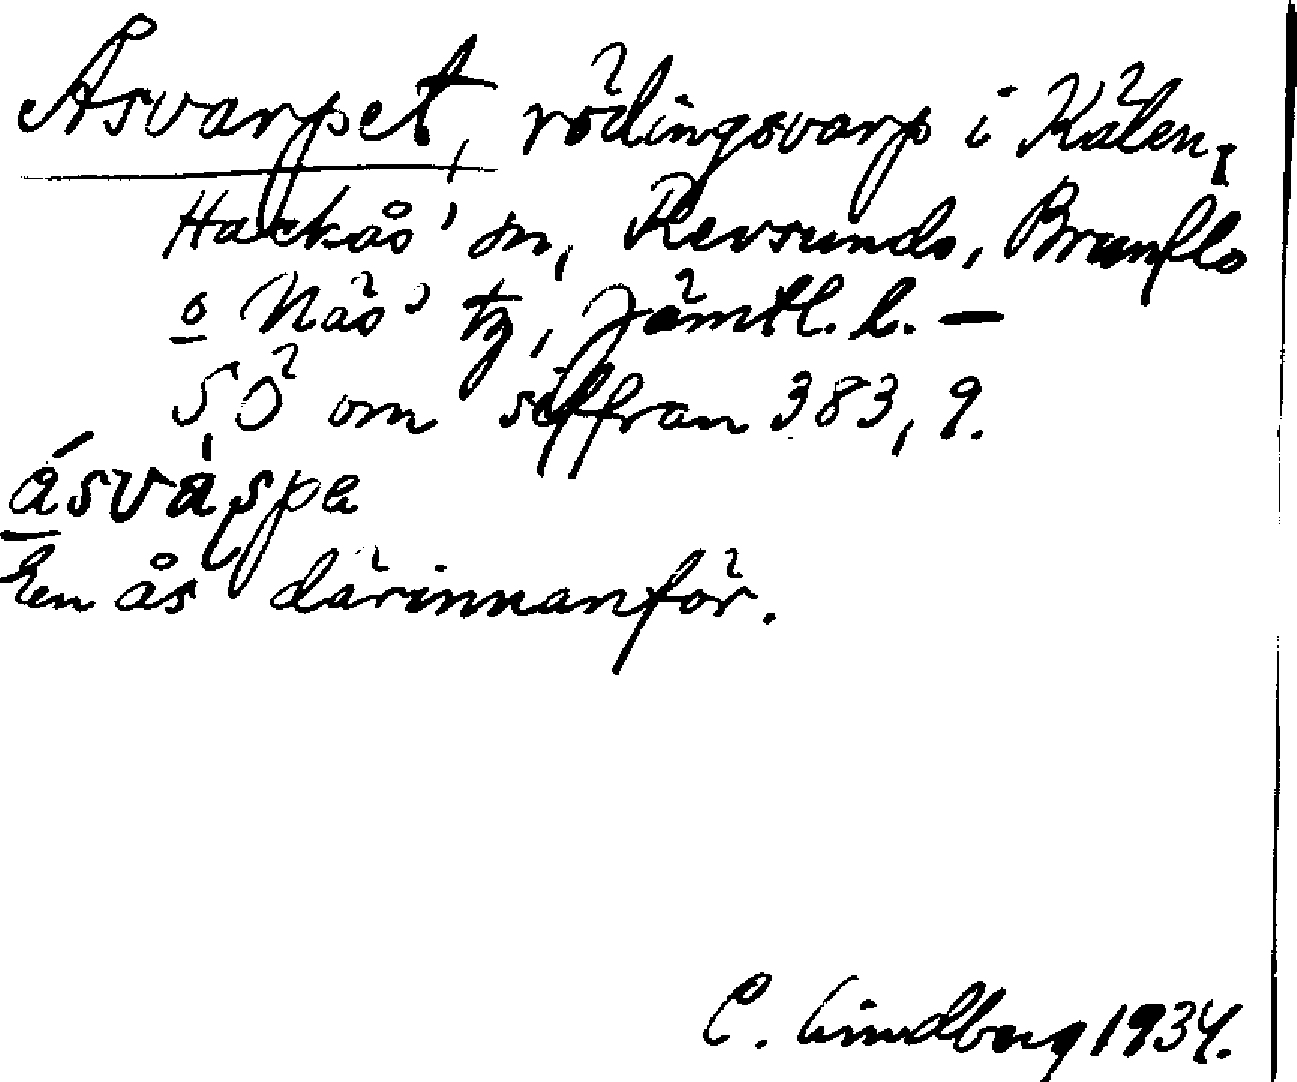 Åsvarpet, rödingsvarp i Kälen,
Hackås' sn, Revsunds, Brunflo
o Näs' tg, Jämtl. l. –
SÖ om siffran 383, 9.
En ås därinnanför.
C. Lindberg 1934.